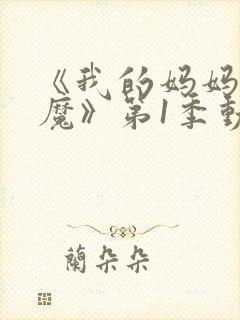 《我的妈妈
魔》第1季
蘭朵朵